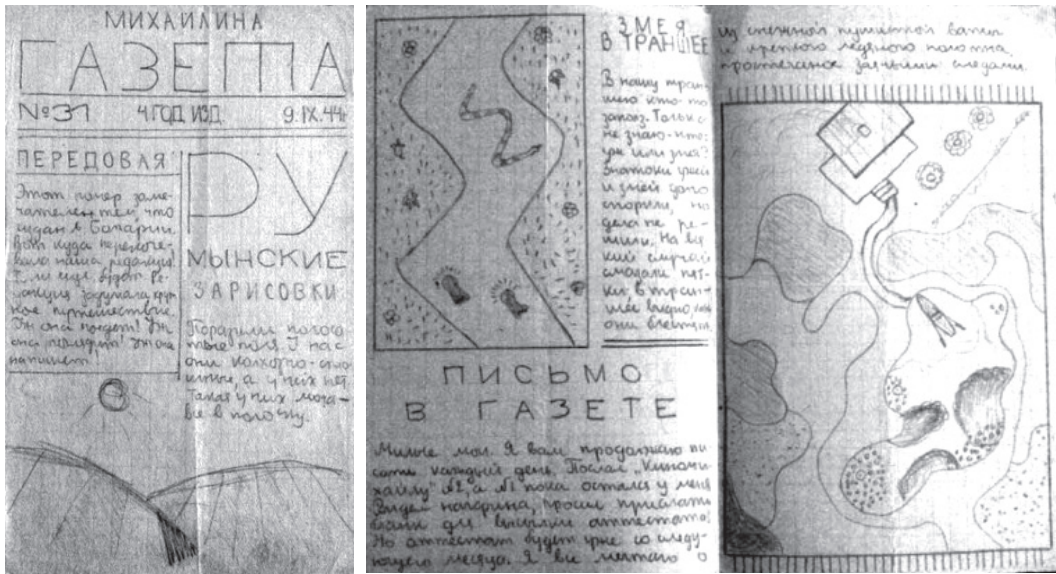 МИХАЙЛИНА
ГАЗЕТА
№31 4 ГОД ИЗД. 9.IX.44
ПЕРЕДОВАЯ
Этот номер заме-
чателен тем, что
издан в Болгарии.
Вот куда перекоче-
вала наша редакция!
То ли еще будет! Ре-
дакция задумала круп
ное путешествие.
Уж она поедет! Уж
она поглядит! Уж она
напишет.
РУ
МЫНСКИЕ
ЗАРИСОВКИ
поля. У нас
они колхозно-
а у них нет.
Такая у них
в полоску.
ЗМЕЯ
В ТРАНШЕЕ
В нашу тран-
шею кто-то
заполз. Только
не знаю - кто:
уж или змея?
Знатоки ужей
и змей долго
спорили, но
дела не ре-
шили. На вся
кий случай
смазали пят-
ки: в тран-
шее видно, как
они блестят.
ПИСЬМО
В ГАЗЕТЕ
Милые мои. Я вам продолжаю пи-
сать каждый день. Послал „Киноми-
хайлу" №2, а №1 пока остался у меня
просил прислать
для высылки аттестата.
Но аттестат будет уже со следу-
ющего месяца. Я все мечтаю о
из снежной пушистой ваты
и крепкого ледяного полотна
простеганное заячьими следами.